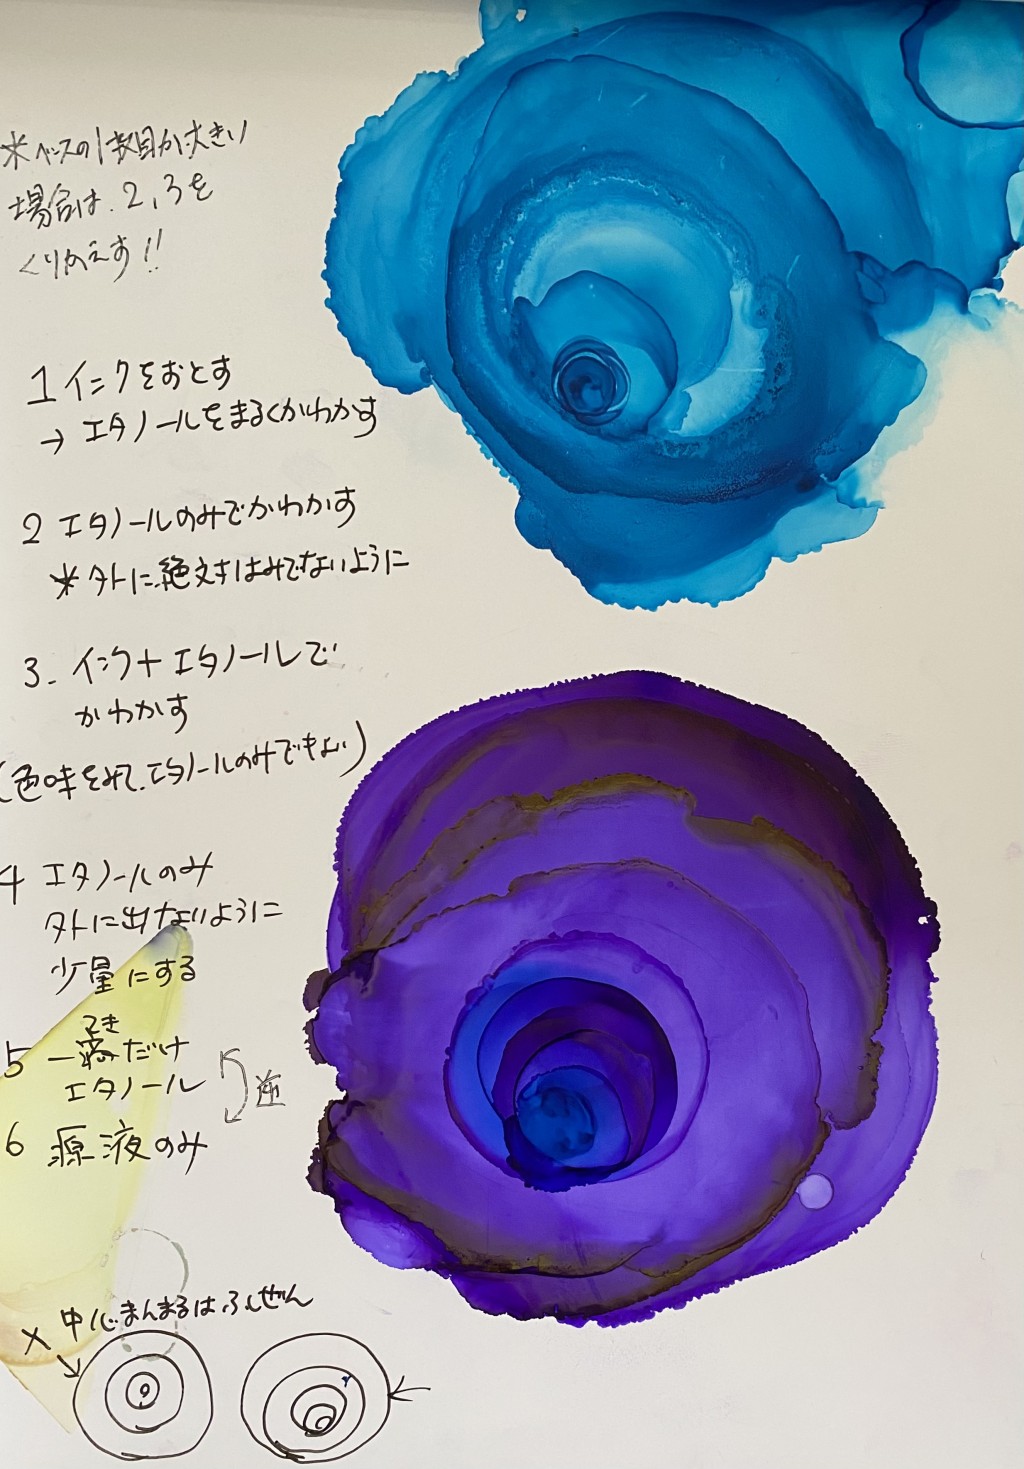 ※ベースの1枚目が大きい
場合は、2,3を
くりかえす!!
1 インクをおとす
→ エタノールをまるくかわかす
2 エタノールのみでかわかす
※外に絶対はみでないように
3. インク+エタノールで
かわかす
(色味をみて、エタノールのみでもよい)
4 エタノールのみ
外に出ないように
少量にする
てき
5 一滴だけ
エタノール
逆
6 源液のみ
× 中心まんまるはふしぜん